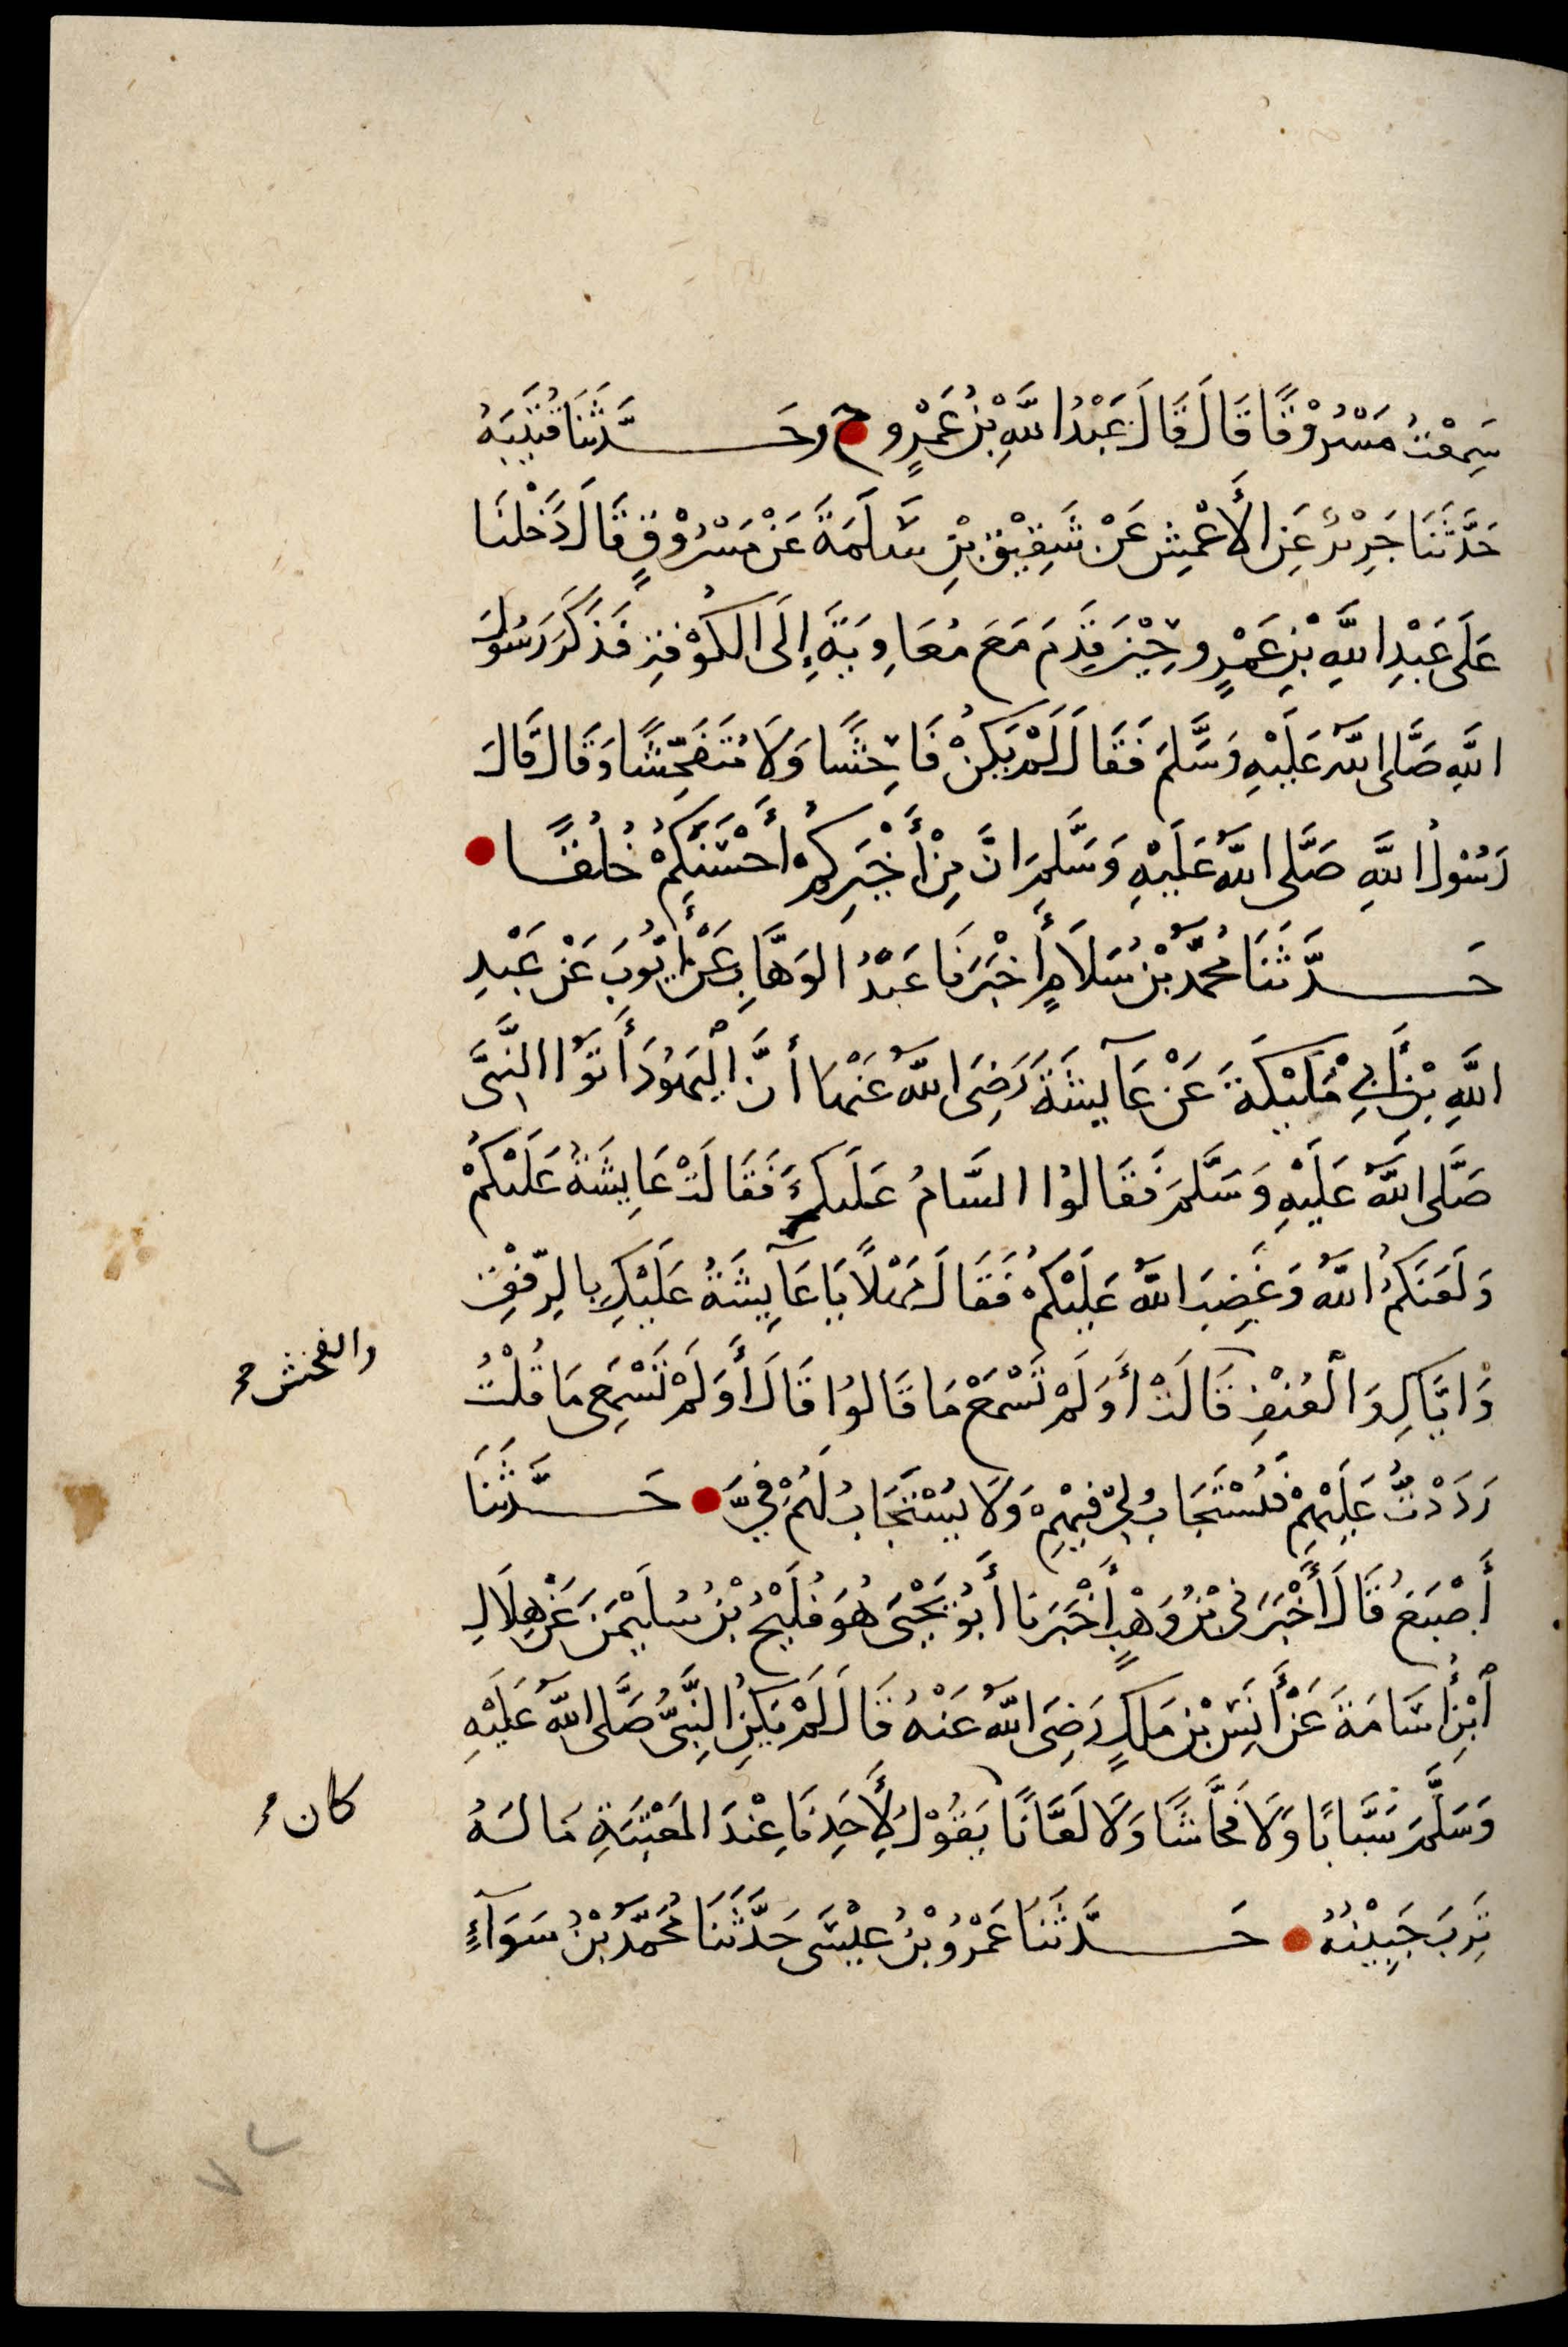 سَمِعْتُ مَسْرُوْقًا قَالَ قَالَ عَبْدُ اللَّهِ بْنُ عَمْرٍو ح وحَدَّثَنَا قُتَيْبَةُ
حَدَّثَنَا جَرِيْرٌ عَنِ الأَعْمَشِ عَنْ شَقِيْقِ بْنِ سَلَمَةَ عَنْ مَسْرُوْقٍ قَالَ دَخَلْنَا
عَلَى عَبْدِ اللَّهِ بْنِ عَمْرٍو حِيْنَ قَدِمَ مَعَ مُعَاوِيَةَ إِلَى الكُوْفَةِ فَذَكَرَ رَسُوْلَ
اللَّهِ صَلَّى اللَّهُ عَلَيْهِ وَسَلَّمَ فَقَالَ لَمْ يَكُنْ فَاحِشًا وَلَا مُتَفَحِّشًا وَقَالَ قَالَ
رَسُوْلُ اللَّهِ صَلَّى اللَّهُ عَلَيْهِ وَسَلَّمَ إِنَّ مِنْ أَخْيَرِكُمْ أَحْسَنَكُمْ خُلُقًا
حَدَّثَنَا مُحَمَّدُ بْنُ سَلَامٍ أَخْبَرَنَا عَبْدُ الوَهَّابِ عَنْ أَيُّوبَ عَنْ عَبْدِ
اللَّهِ بْنِ أَبِي مُلَيْكَةَ عَنْ عَآيِشَةَ رَضِيَ اللَّهُ عَنْهَا أَنَّ الْيَهُوْدَ أَتَوُا النَّبِيَّ
صَلَّى اللَّهُ عَلَيْهِ وَسَلَّمَ فَقَالُوا السَّامُ عَلَيْكُمْ فَقَالَتْ عَايِشَةُ عَلَيْكُمْ
وَلَعَنَكُمُ اللَّهُ وَغَضِبَ اللَّهُ عَلَيْكُمْ فَقَالَ مَهْلًا يَا عَآيِشَةُ عَلَيْكِ بِالرِّفْقِ
وَإِيَّاكِ وَالْعُنْفِ قَالَتْ أَوَلَمْ تَسْمَعْ مَا قَالُوا قَالَ أَوَلَمْ تَسْمَعِي مَا قُلْتُ
والفحش
رَدَدْتُ عَلَيْهِمْ فَيُسْتَجَابُ لِيْ فِيْهِمْ وَلَا يُسْتَجَابُ لَهُمْ فِيَّ حَدَّثَنَا
أَصْبَغُ قَالَ أَخْبَرَنِي بْنُ وَهْبٍ أَخْبَرَنَا أَبُوْ يَحْيَى هُوَ فُلَيْحُ بْنُ سُلَيْمٰنَ عَنْ هِلَالِ
ابْنِ أُسَامَةَ عَنْ أَنَسِ بْنِ مٰلِكٍ رَضِيَ اللَّهُ عَنْهُ قَالَ لَمْ يَكُنِ النَّبِيُّ صَلَّى اللَّهُ عَلَيْهِ
وَسَلَّمَ سَبَّابًا وَلَا فَحَّاشًا وَلَا لَعَّانًا يَقُوْلُ لِأَحَدِنَا عِنْدَ المَعْتِبَةِ مَا لَهُ
كان
تَرِبَ جَبِيْنُهُ حَدَّثَنَا عَمْرُو بْنُ عِيْسَى حَدَّثَنَا مُحَمَّدُ بْنُ سَوَآءٍ